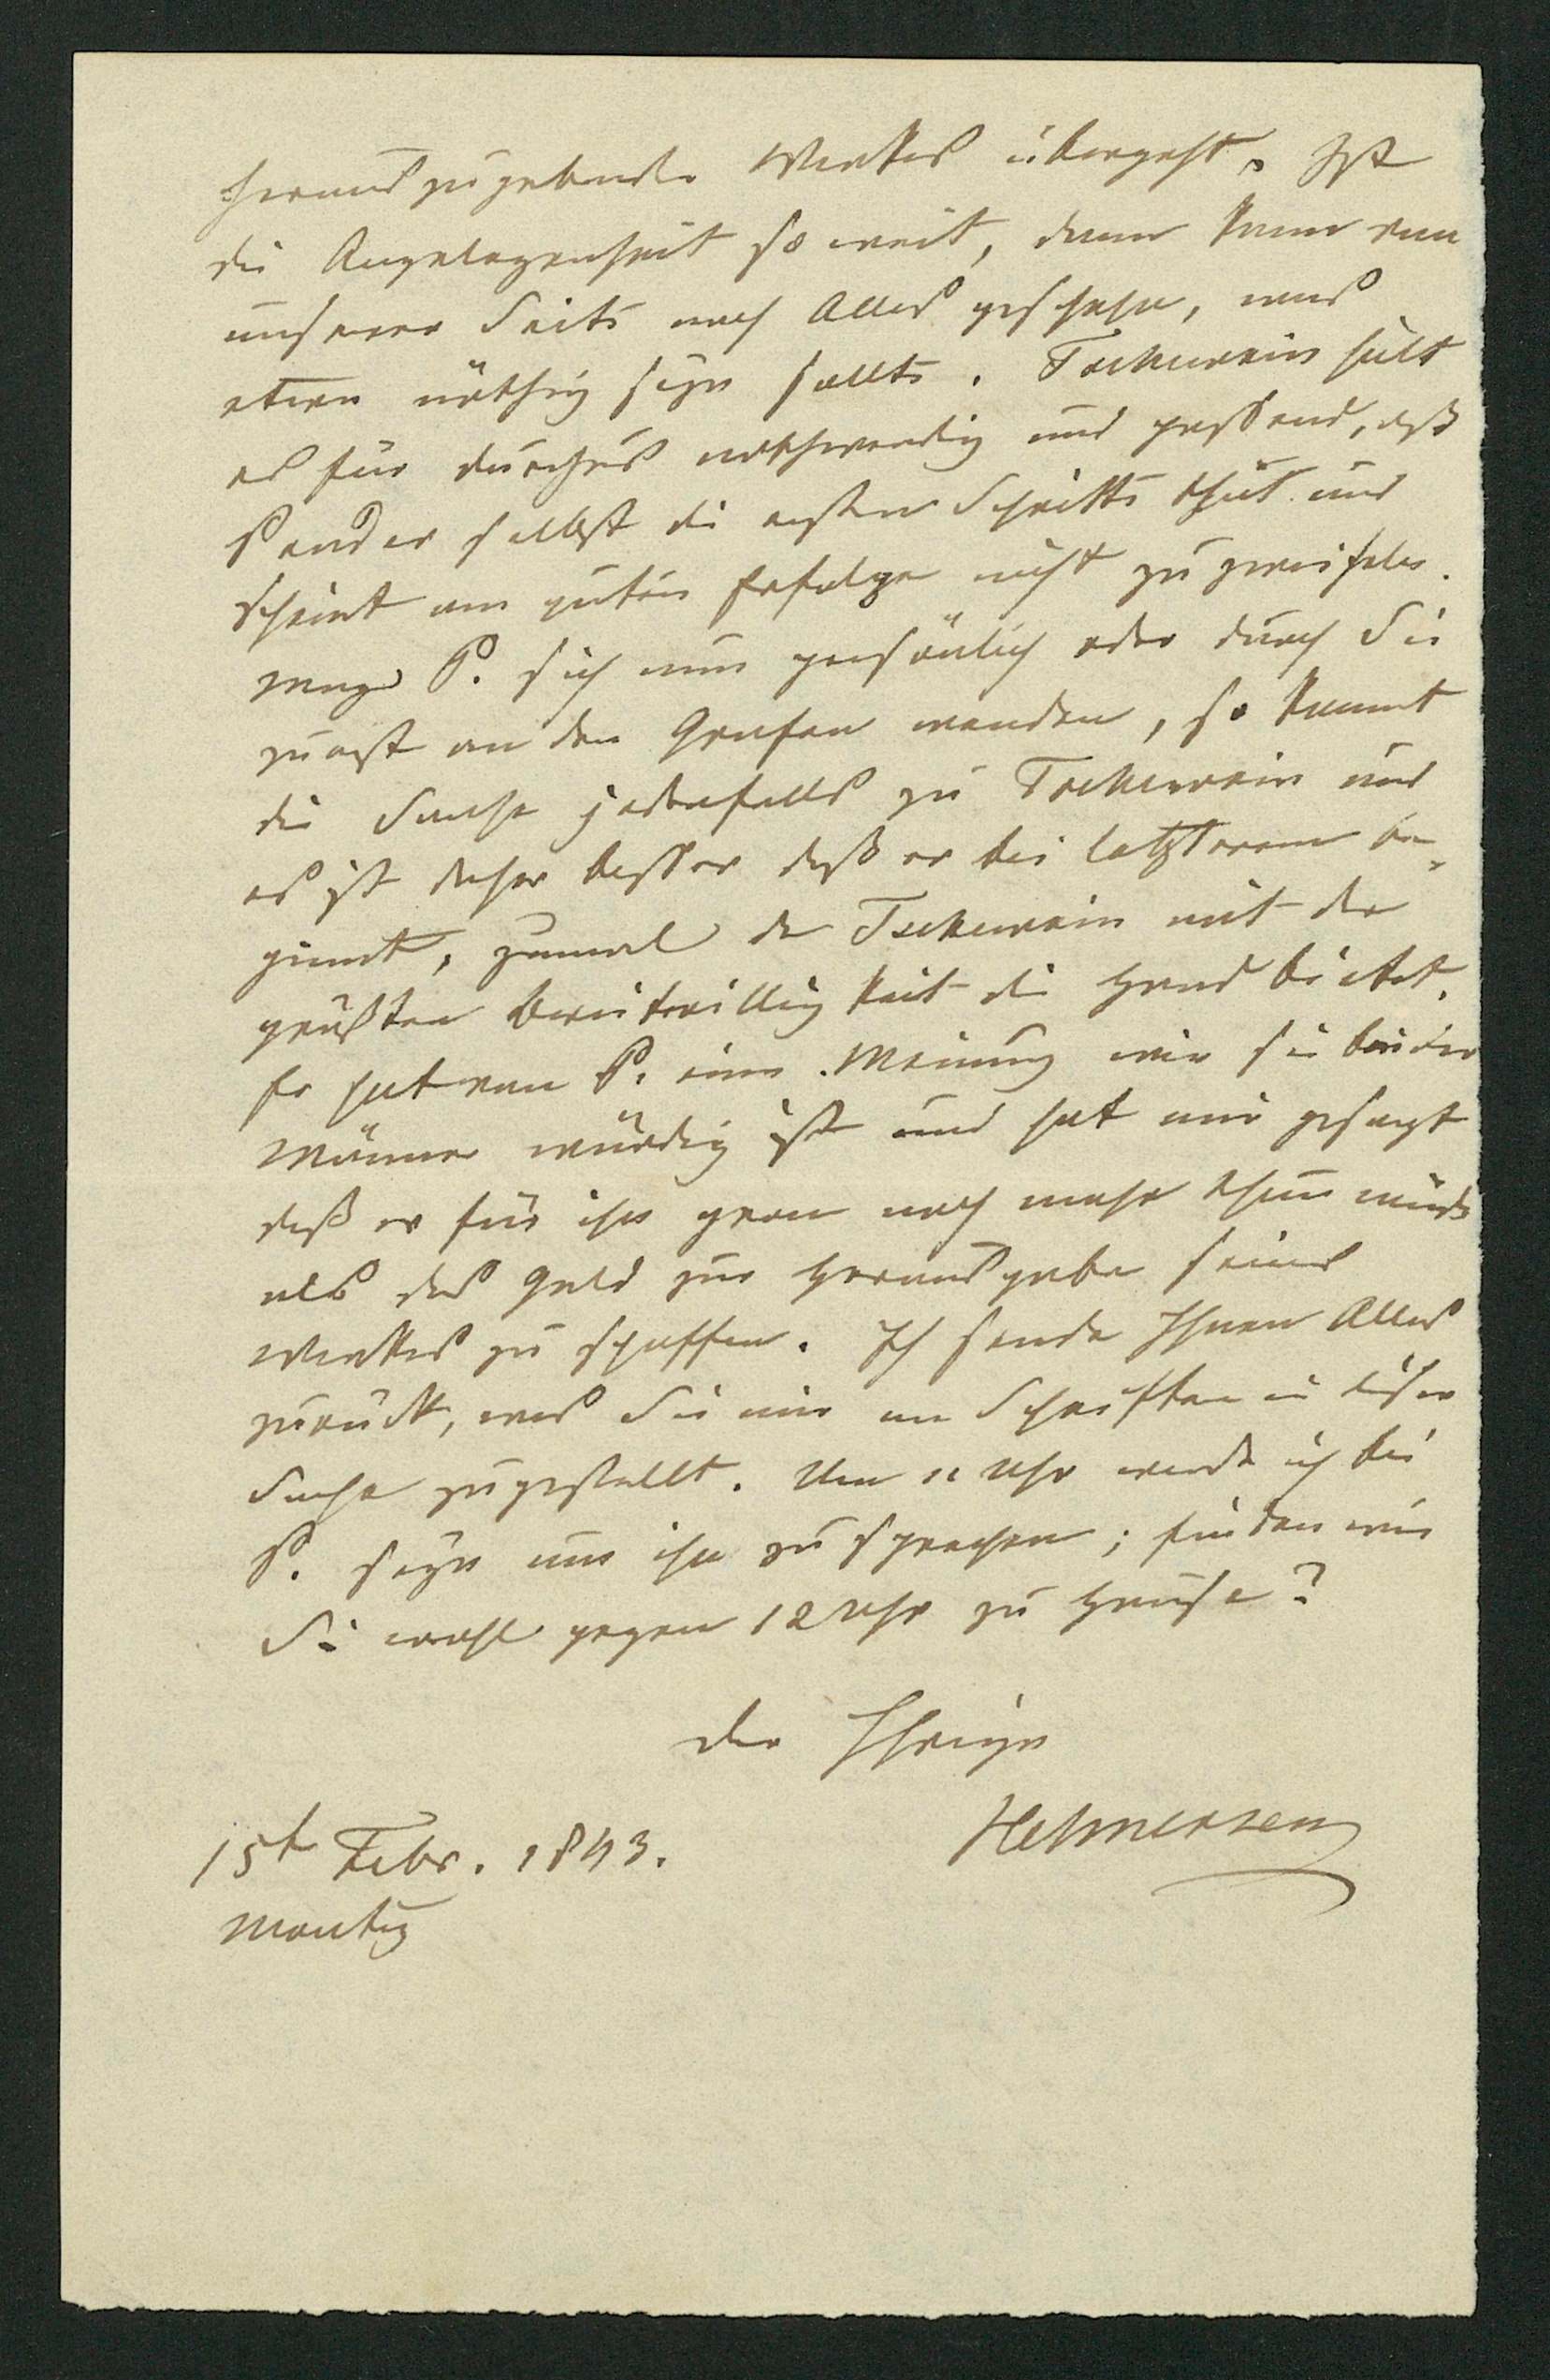 herauszugebenden Werkes übergeht. Ist
die Angelegenheit so weit, dann kann von
unserer Seite noch Alles geschehen, was
etwa nöthig seyn sollte. Tschewkin hält
es für durchaus nothwendig und passend, daß
Pander selbst die ersten Schritte thut und
scheint am guten Erfolge nicht zu zweifeln.
Mag P. sich nun persönlich oder durch Sie
zuerst an den Grafen wenden, so kommt
die Sache jedenfalls zu Tschewkin und
es ist daher besser daß er bei letzterem be-
ginnt, zumal da Tschewkin mit der
größten Bereitwilligkeit die Hand bietet.
Er hat von P. eine Meinung wie sie beider
Männer würdig ist und hat mir gesagt
daß er für ihn gern noch mehr thun würde
als das Geld zur Herausgabe seines
Werkes zu schaffen. Ich sende Ihnen Alles
zurück, was Sie mir an Schriften in dieser
Sache zugestellt. Um 11 Uhr werde ich bei
P. seyn um ihn zu sprechen; finden wir
Sie wohl gegen 12 Uhr zu Hause?
Der Ihrige
Helmersen
15t Febr. 1843.
Montag